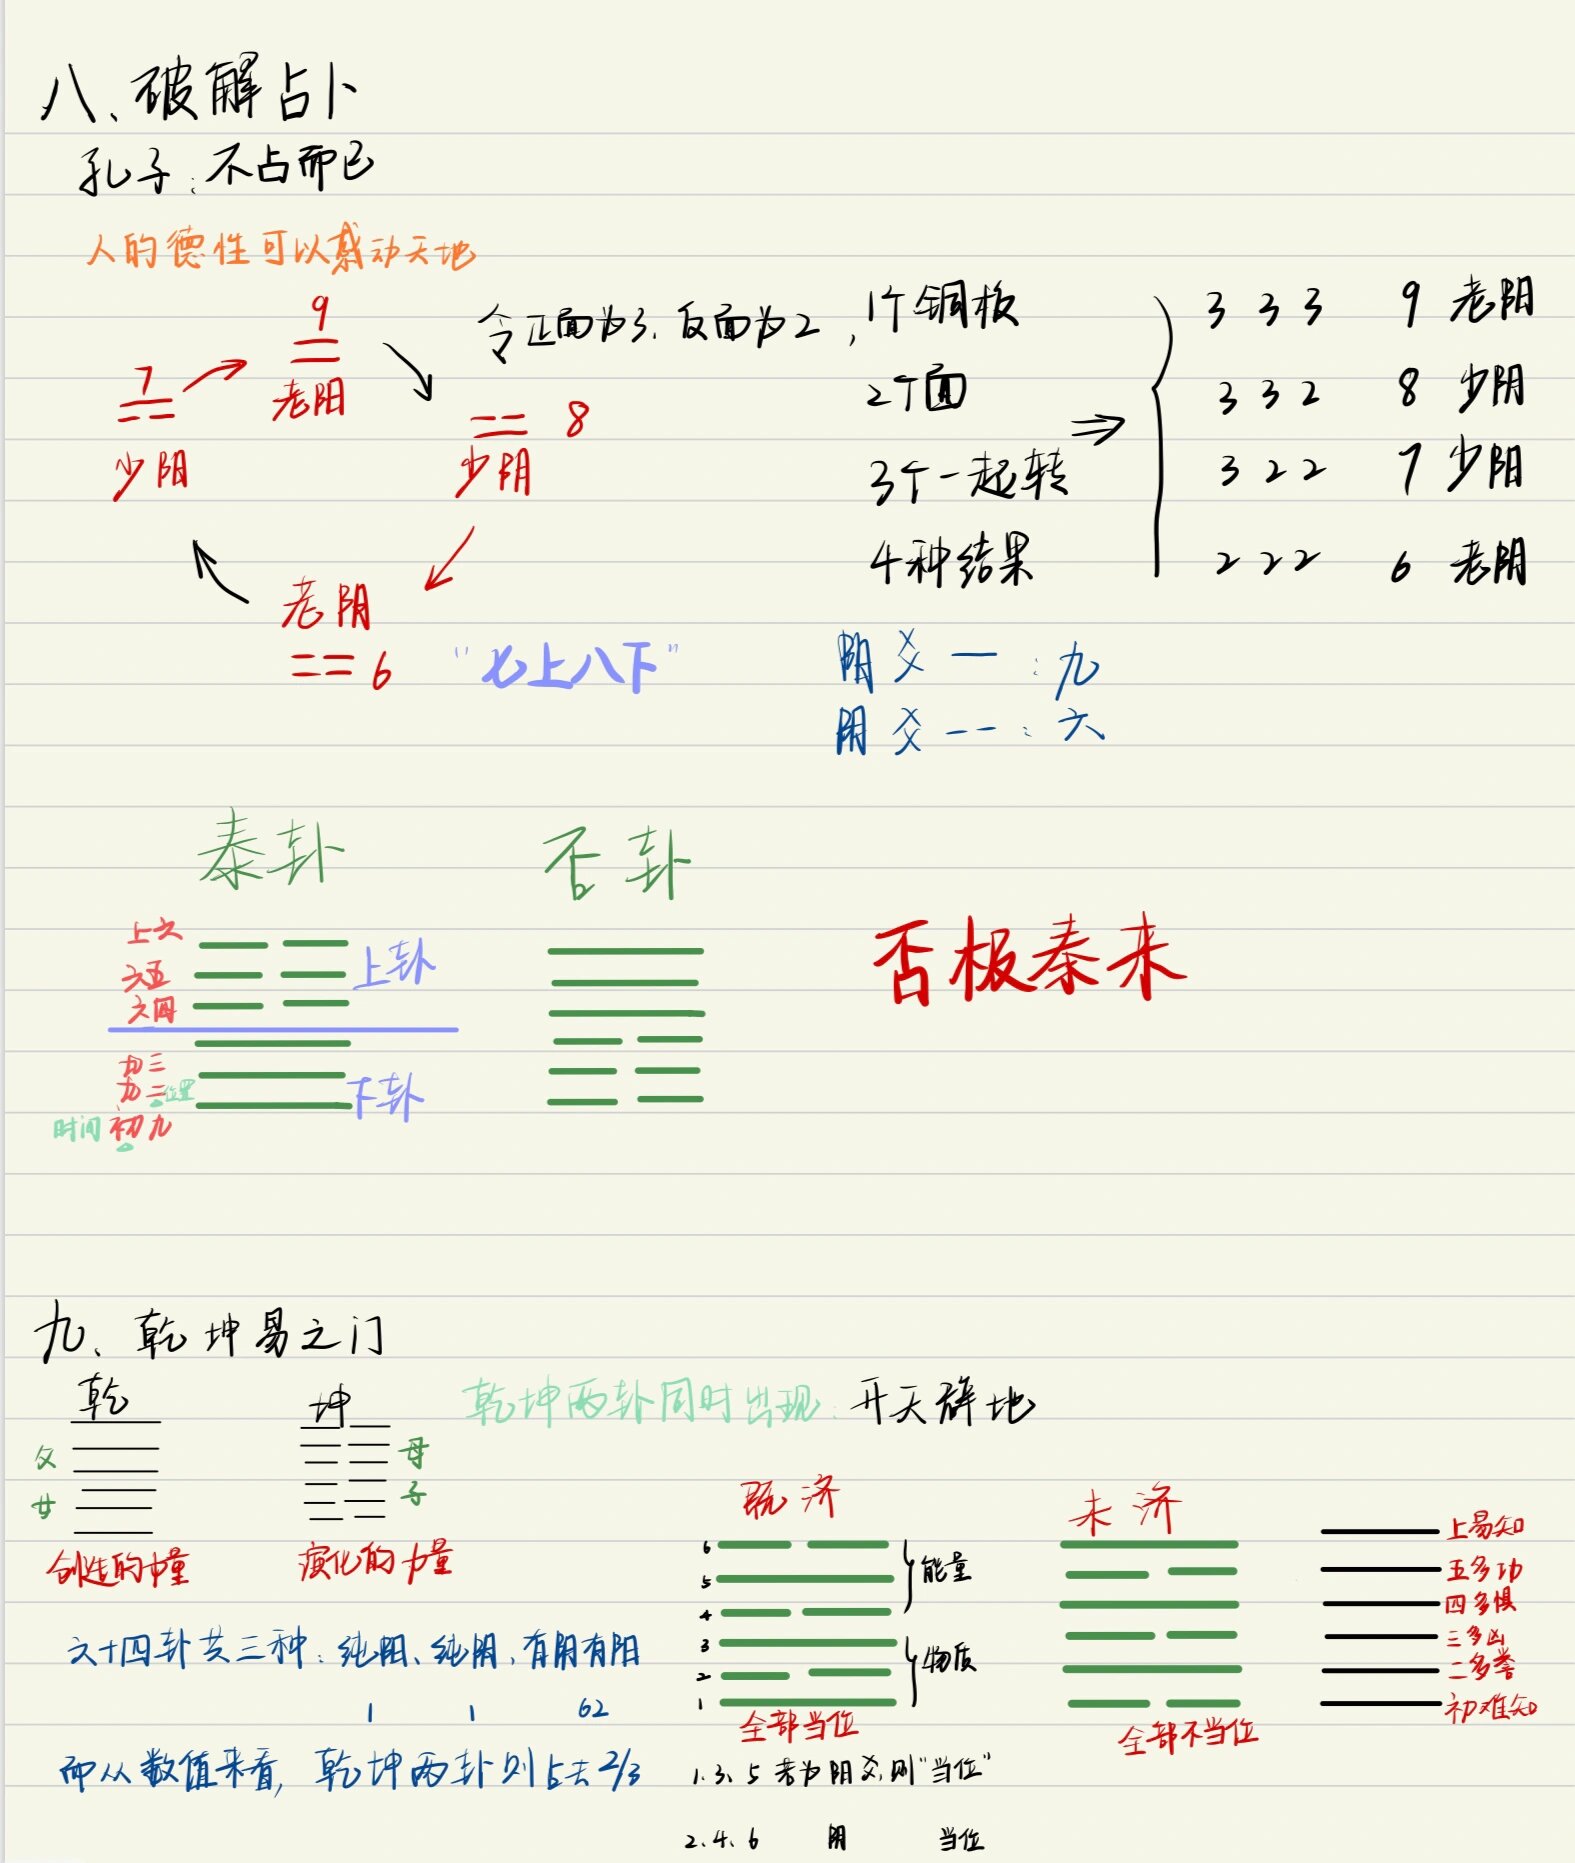 八、破解占卜
孔子:不占而已
人的德性可以感动天地
9
老阳
7
少阳
8
少阴
老阴
6
"七上八下"
令正面为3,反面为2,
1个铜板
2个面
3个一起转
4种结果
⇒
3 3 3 9 老阳
3 3 2 8 少阴
3 2 2 7 少阳
2 2 2 6 老阴
阳爻 — : 九
阴爻 -- : 六
泰卦
否卦
上六
六五
六四
九三
九二 位置
时间 初九
上卦
下卦
否极泰来
九、乾坤易之门
乾
父
女
创造的力量
坤
母
子
演化的力量
乾坤两卦同时出现:开天辟地
六十四卦共三种:纯阳、纯阴、有阴有阳
1 1 62
而从数值来看,乾坤两卦则占去2/3
既济
6
5
4
3
2
1
能量
物质
全部当位
未济
全部不当位
上易知
五多功
四多惧
三多凶
二多誉
初难知
1.3.5 若为阳爻,则"当位"
2.4.6 阴 当位